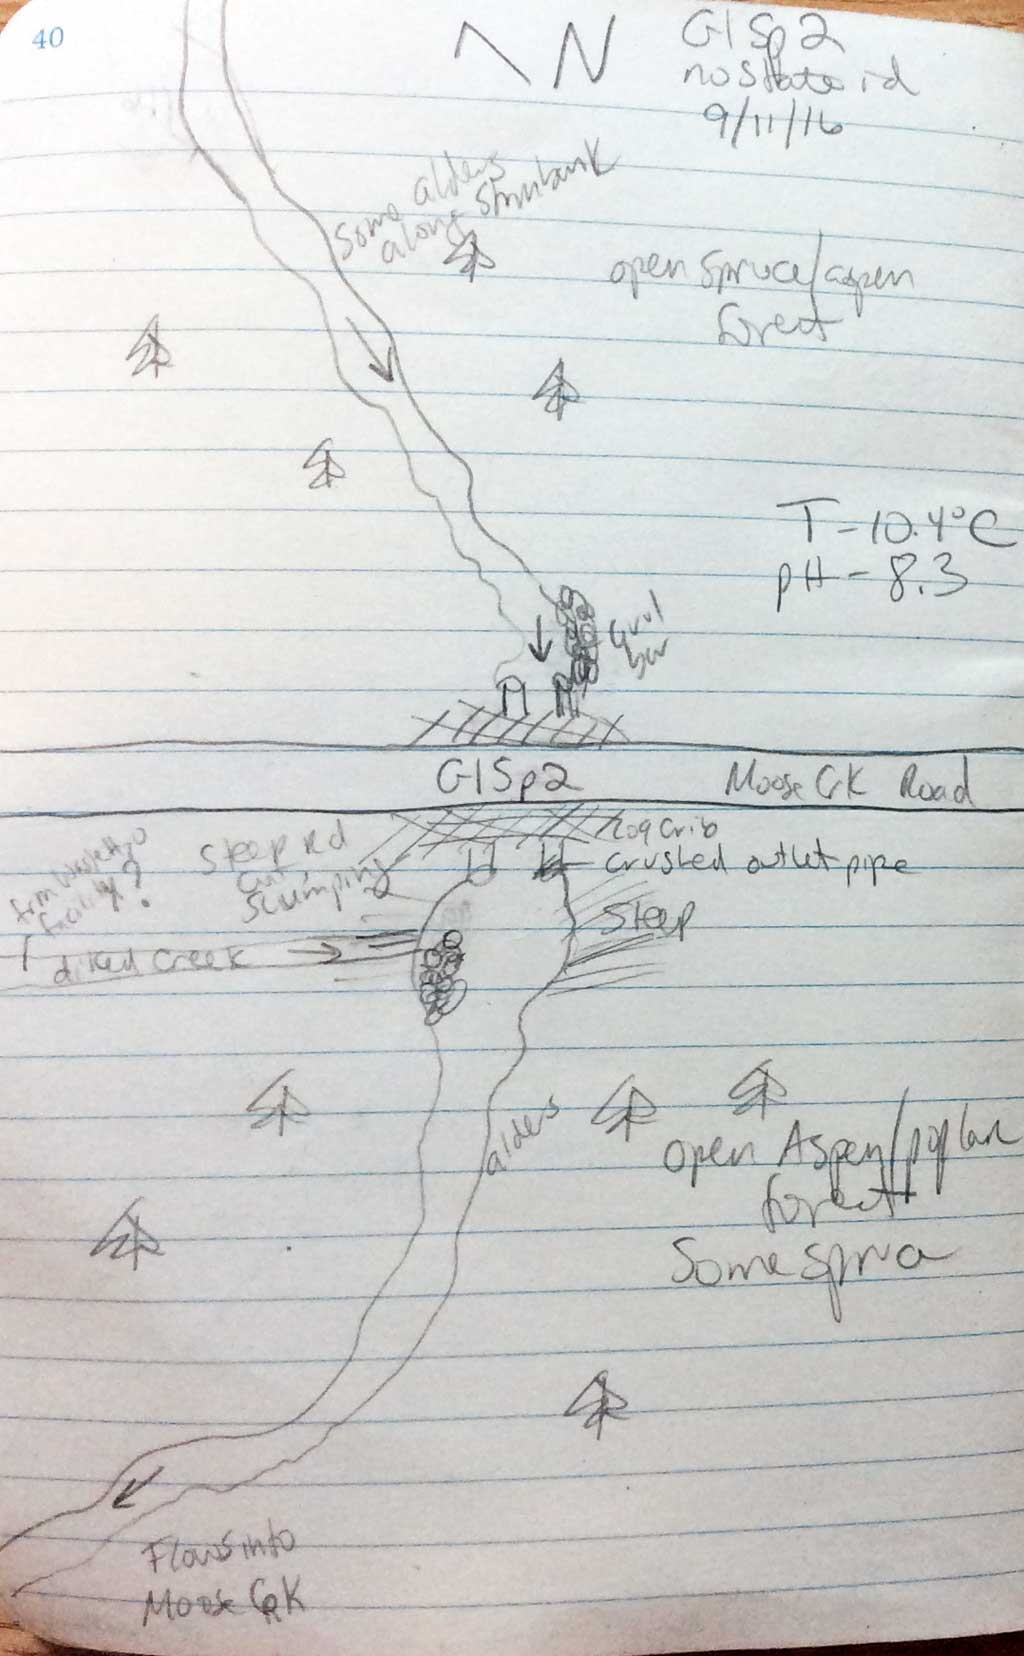 40
N
GlSp2
no State id
9/11/16
Some alders
along Strmbank
open Spruce/aspen
forest
T - 10.4°C
pH - 8.3
Grvl
bar
GlSp2
Moose CrK Road
Log Crib
Crushed outlet pipe
Steep rd
cut,
Slumping
from Waste H2O
facility?
Steep
diked creek
alders
open Aspen/poplar
forest
Some spruce
Flows into
Moose CrK